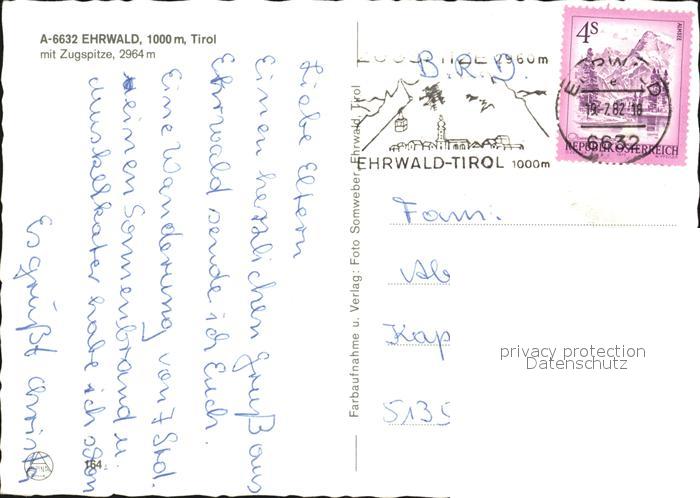 A-6632 EHRWALD, 1000 m, Tirol
mit Zugspitze, 2964 m
Liebe Eltern
Einen herzlichen Gruß aus
Ehrwald sende ich Euch.
Eine Wanderung von 7 Std.
einen Sonnenbrand u.
Muskelkater habe ich schon
Es grüßt
164
Farbaufnahme u. Verlag: Foto Somweber, Ehrwald, Tirol
2960m
EHRWALD-TIROL 1000m
B.R.D.
4S
ALMSEE
19.-7.82-18
6632
REPUBLIK ÖSTERREICH
Fami
Kap
5135
privacy protection
Datenschutz